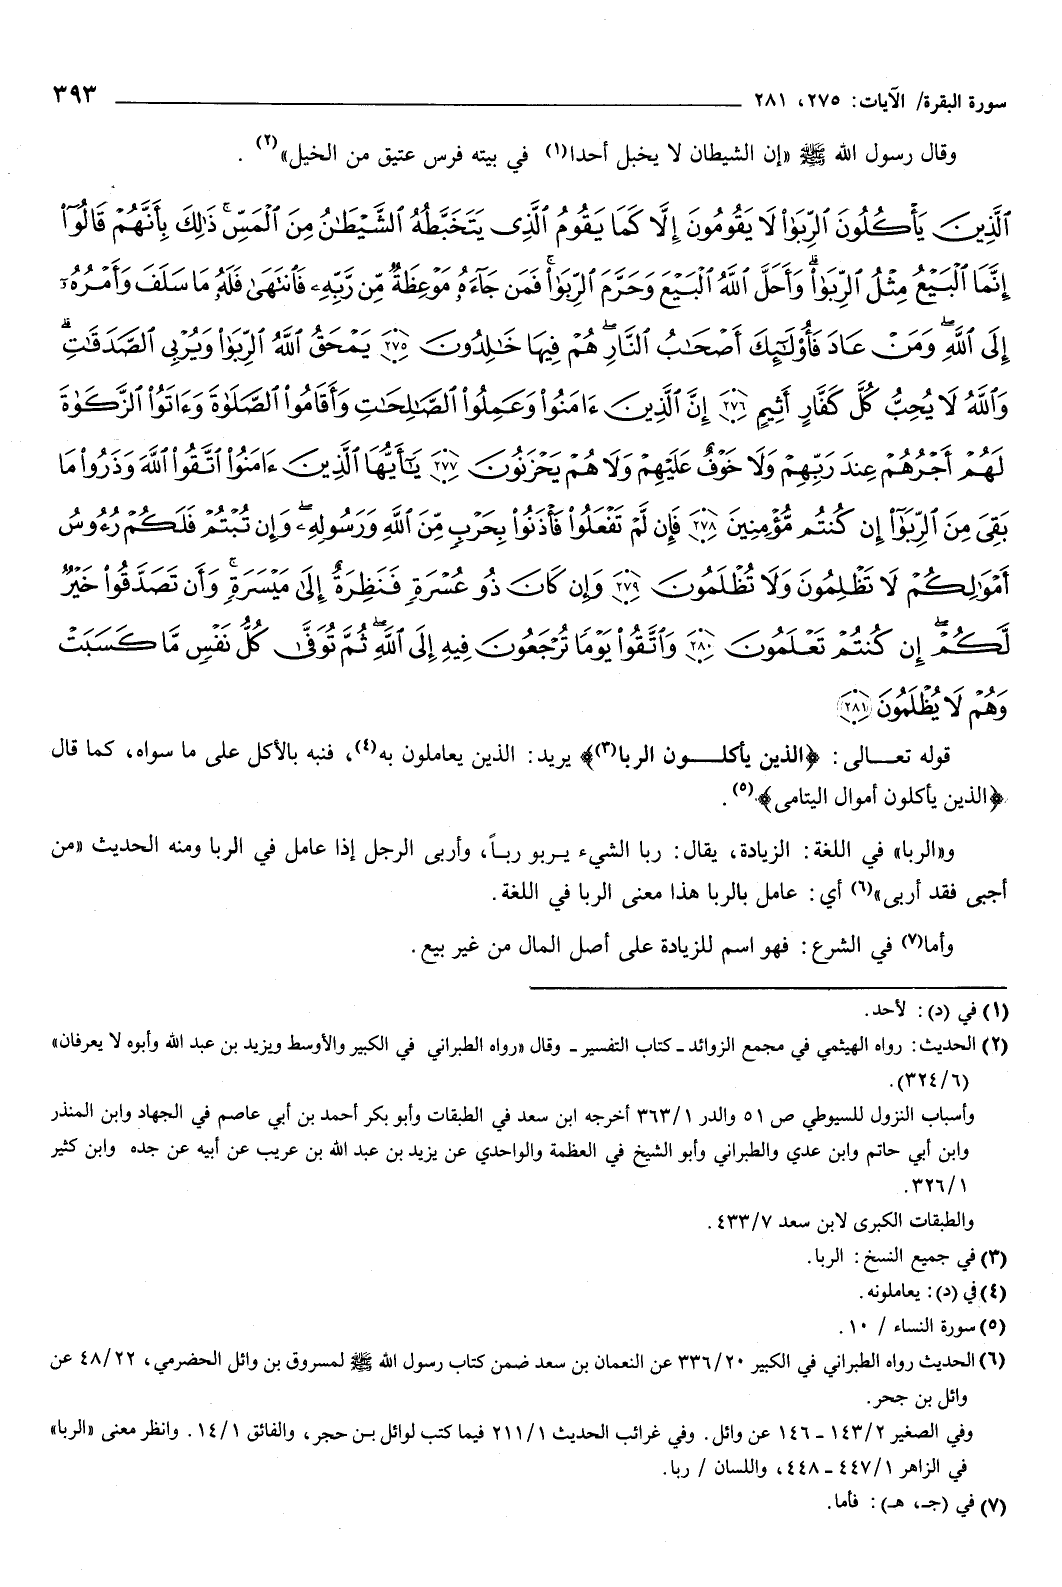 سورة البقرة/ الآيات: ٢٧٥، ٢٨١ ٣٩٣
وقال رسول الله ﷺ «إن الشيطان لا يخبل أحدا(١) في بيته فرس عتيق من الخيل»(٢) .
ٱلَّذِينَ يَأْكُلُونَ ٱلرِّبَوٰا۟ لَا يَقُومُونَ إِلَّا كَمَا يَقُومُ ٱلَّذِى يَتَخَبَّطُهُ ٱلشَّيْطَٰنُ مِنَ ٱلْمَسِّ ۚ ذَٰلِكَ بِأَنَّهُمْ قَالُوٓا۟
إِنَّمَا ٱلْبَيْعُ مِثْلُ ٱلرِّبَوٰا۟ ۗ وَأَحَلَّ ٱللَّهُ ٱلْبَيْعَ وَحَرَّمَ ٱلرِّبَوٰا۟ ۚ فَمَن جَآءَهُۥ مَوْعِظَةٌ مِّن رَّبِّهِۦ فَٱنتَهَىٰ فَلَهُۥ مَا سَلَفَ وَأَمْرُهُۥٓ
إِلَى ٱللَّهِ ۖ وَمَنْ عَادَ فَأُو۟لَٰٓئِكَ أَصْحَٰبُ ٱلنَّارِ ۖ هُمْ فِيهَا خَٰلِدُونَ ٢٧٥ يَمْحَقُ ٱللَّهُ ٱلرِّبَوٰا۟ وَيُرْبِى ٱلصَّدَقَٰتِ ۗ
وَٱللَّهُ لَا يُحِبُّ كُلَّ كَفَّارٍ أَثِيمٍ ٢٧٦ إِنَّ ٱلَّذِينَ ءَامَنُوا۟ وَعَمِلُوا۟ ٱلصَّٰلِحَٰتِ وَأَقَامُوا۟ ٱلصَّلَوٰةَ وَءَاتَوُا۟ ٱلزَّكَوٰةَ
لَهُمْ أَجْرُهُمْ عِندَ رَبِّهِمْ وَلَا خَوْفٌ عَلَيْهِمْ وَلَا هُمْ يَحْزَنُونَ ٢٧٧ يَٰٓأَيُّهَا ٱلَّذِينَ ءَامَنُوا۟ ٱتَّقُوا۟ ٱللَّهَ وَذَرُوا۟ مَا
بَقِىَ مِنَ ٱلرِّبَوٰٓا۟ إِن كُنتُم مُّؤْمِنِينَ ٢٧٨ فَإِن لَّمْ تَفْعَلُوا۟ فَأْذَنُوا۟ بِحَرْبٍ مِّنَ ٱللَّهِ وَرَسُولِهِۦ ۖ وَإِن تُبْتُمْ فَلَكُمْ رُءُوسُ
أَمْوَٰلِكُمْ لَا تَظْلِمُونَ وَلَا تُظْلَمُونَ ٢٧٩ وَإِن كَانَ ذُو عُسْرَةٍ فَنَظِرَةٌ إِلَىٰ مَيْسَرَةٍ ۚ وَأَن تَصَدَّقُوا۟ خَيْرٌ
لَّكُمْ ۖ إِن كُنتُمْ تَعْلَمُونَ ٢٨٠ وَٱتَّقُوا۟ يَوْمًا تُرْجَعُونَ فِيهِ إِلَى ٱللَّهِ ۖ ثُمَّ تُوَفَّىٰ كُلُّ نَفْسٍ مَّا كَسَبَتْ
وَهُمْ لَا يُظْلَمُونَ ٢٨١
قوله تعـــالى: ﴿الذين يأكلـــون الربا(٣)﴾ يريد: الذين يعاملون به(٤)، فنبه بالأكل على ما سواه، كما قال
﴿الذين يأكلون أموال اليتامى﴾(٥).
و«الربا» في اللغة: الزيادة، يقال: ربا الشيء يـربو ربـاً، وأربى الرجل إذا عامل في الربا ومنه الحديث «من
أجبى فقد أربى»(٦) أي: عامل بالربا هذا معنى الربا في اللغة.
وأما(٧) في الشرع: فهو اسم للزيادة على أصل المال من غير بيع.
(١) في (د): لأحد.
(٢) الحديث: رواه الهيثمي في مجمع الزوائد ـ كتاب التفسير ـ وقال «رواه الطبراني في الكبير والأوسط ويزيد بن عبد الله وأبوه لا يعرفان»
(٣٢٤/٦).
وأسباب النزول للسيوطي ص ٥١ والدر ٣٦٣/١ أخرجه ابن سعد في الطبقات وأبو بكر أحمد بن أبي عاصم في الجهاد وابن المنذر
وابن أبي حاتم وابن عدي والطبراني وأبو الشيخ في العظمة والواحدي عن يزيد بن عبد الله بن عريب عن أبيه عن جده وابن كثير
٣٢٦/١.
والطبقات الكبرى لابن سعد ٤٣٣/٧.
(٣) في جميع النسخ: الربا.
(٤) في (د): يعاملونه.
(٥) سورة النساء / ١٠.
(٦) الحديث رواه الطبراني في الكبير ٣٣٦/٢٠ عن النعمان بن سعد ضمن كتاب رسول الله ﷺ لمسروق بن وائل الحضرمي، ٤٨/٢٢ عن
وائل بن جحر.
وفي الصغير ١٤٣/٢ ـ ١٤٦ عن وائل. وفي غرائب الحديث ٢١١/١ فيما كتب لوائل بـن حجر، والفائق ١٤/١. وانظر معنى «الربا»
في الزاهر ٤٤٧/١ ـ ٤٤٨، واللسان / ربا.
(٧) في (جـ، هـ): فأما.